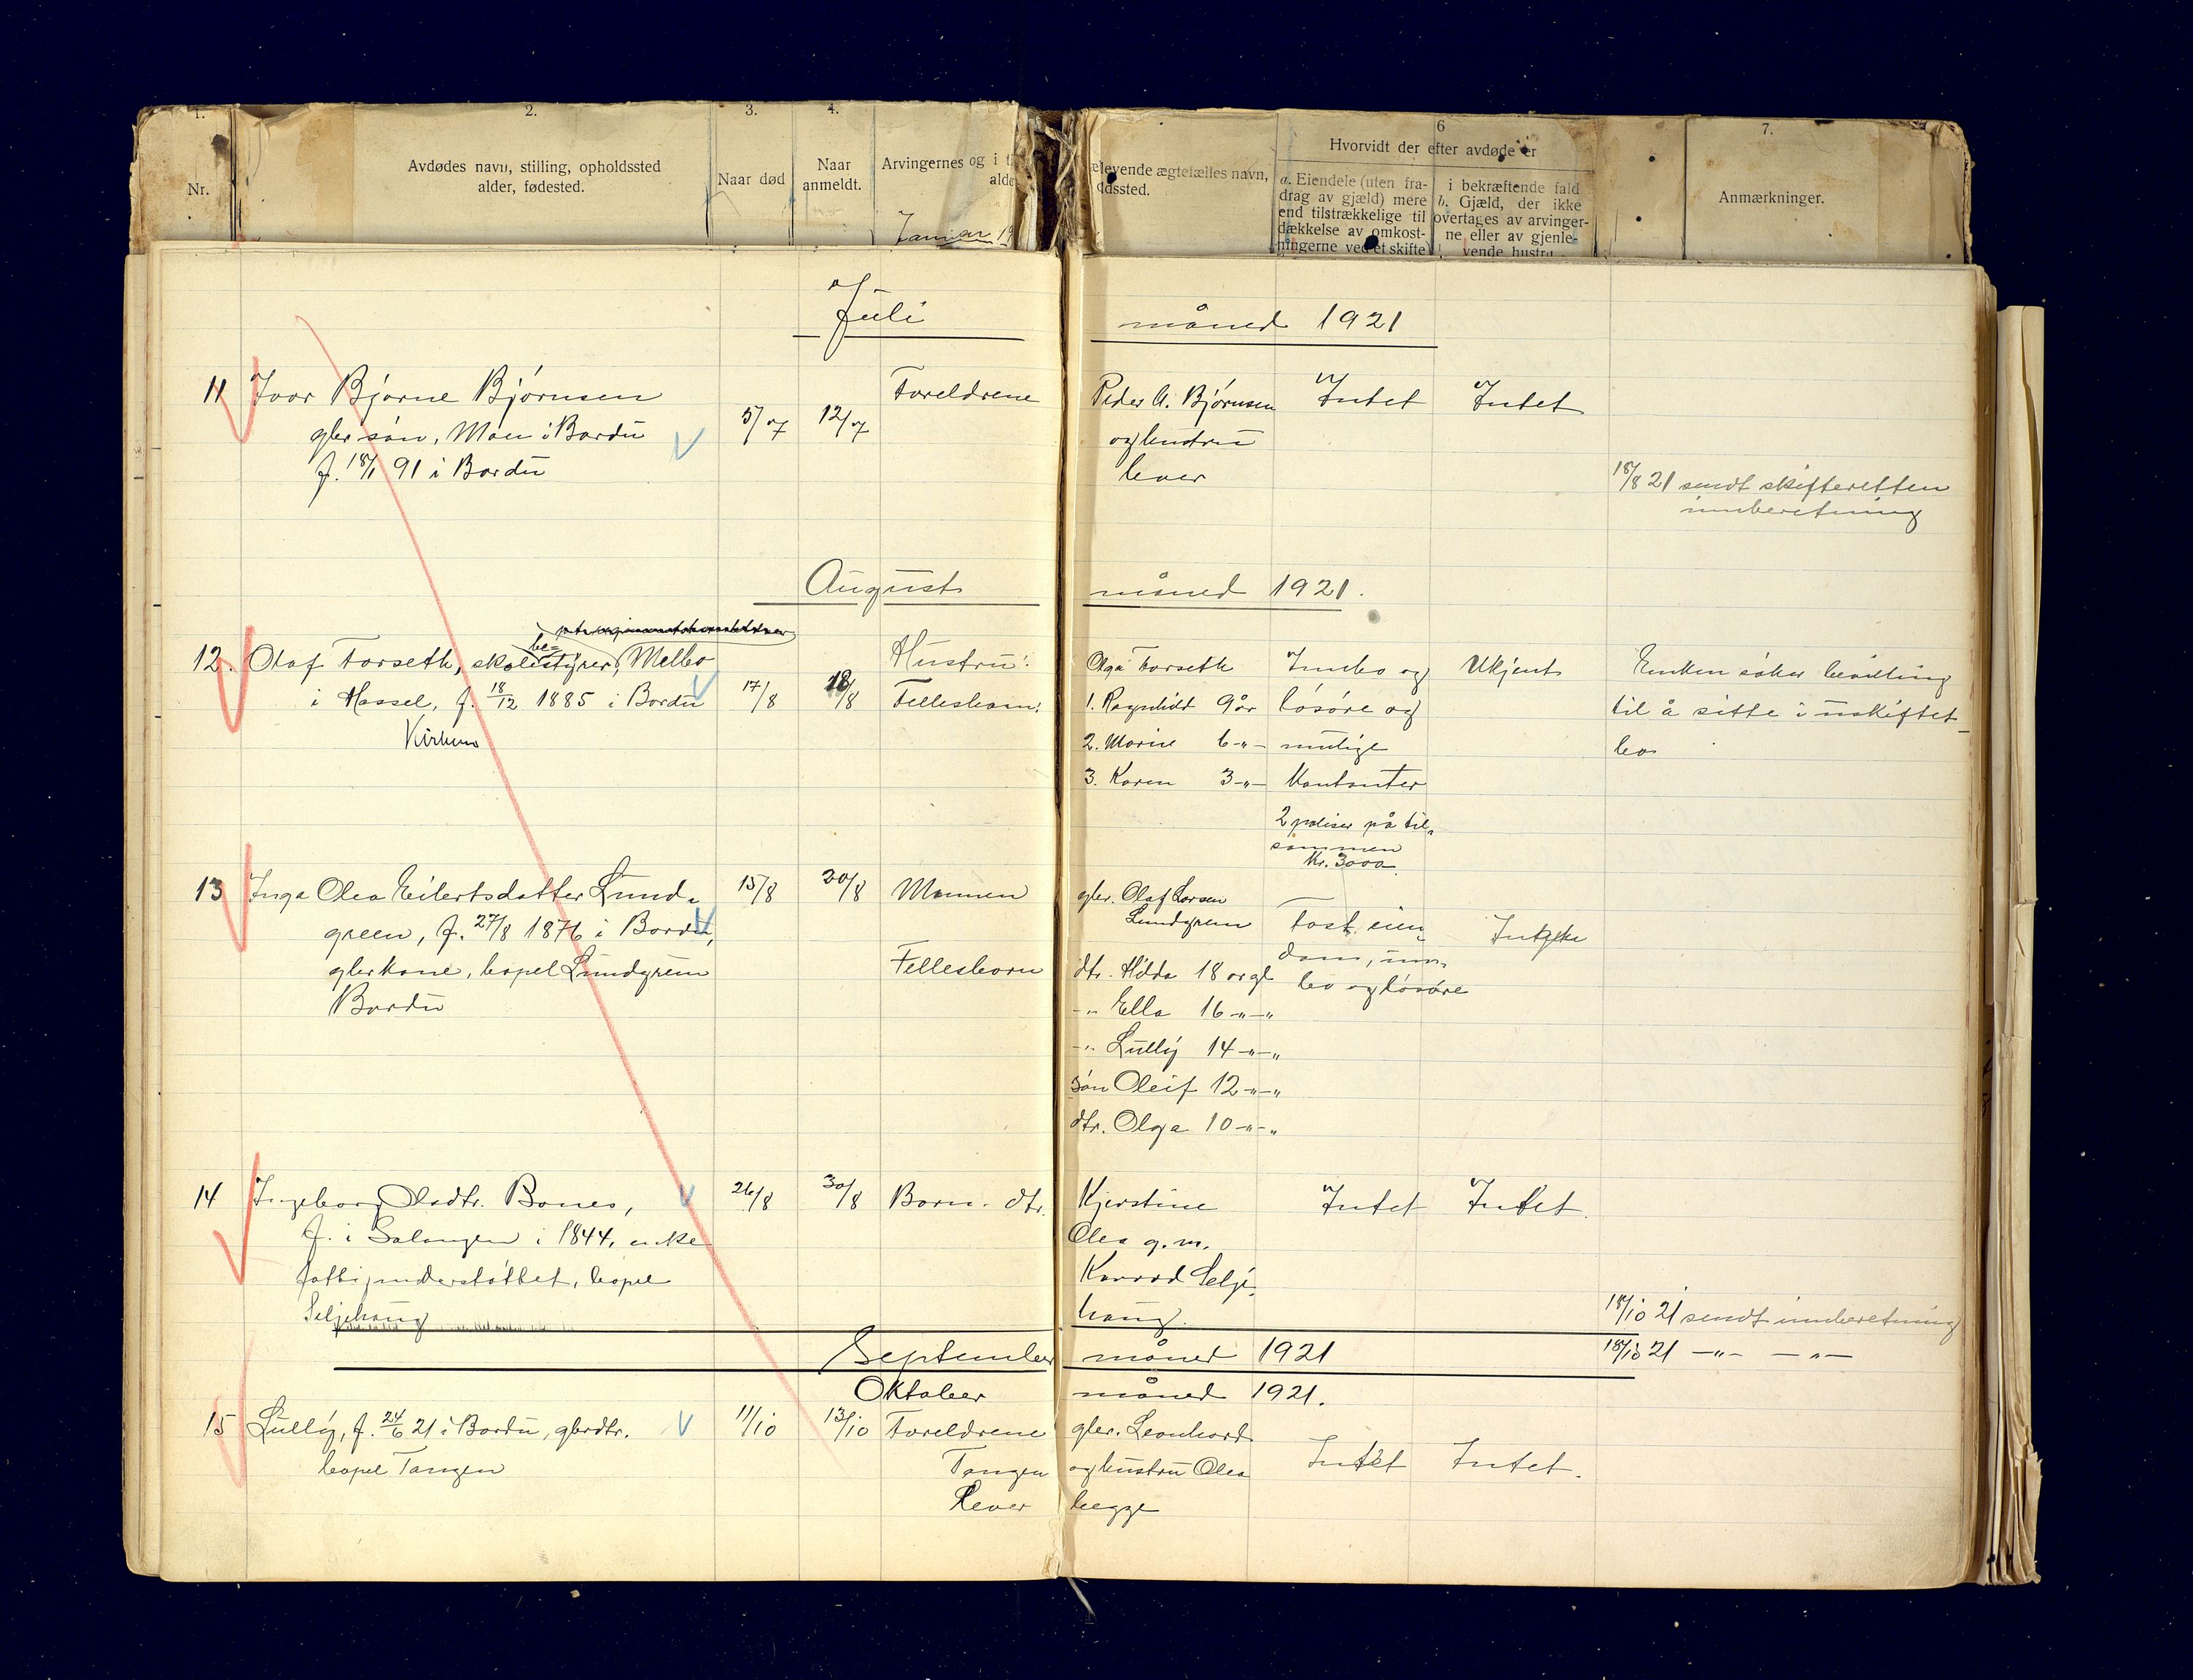 1. 2. 3. 4. 6 7.
Nr.
Avdødes navn, stilling, opholdssted
alder, fødested.
Naar død
Naar
anmeldt.
Arvingernes og i
alde
Januar 19
levende ægtefælles navn,
dssted.
Hvorvidt der efter avdøde er
a. Eiendele (uten fra-
drag av gjæld) mere
end tilstrækkelige til
dækkelse av omkost-
ningerne ved et skifte
i bekræftende fald
b. Gjæld, der ikke
overtages av arvinger-
ne eller av gjenle-
vende hustru
Anmærkninger.
Juli måned 1921
11 Ivar Bjarne Bjørnsen Foreldrene Peder A. Bjørnsen Intet Intet
gbr søn, Moen i Bardu 5/7 12/7 og hustru
f. 18/1 91 i Bardu lever
18/8 21 sendt skifteretten
innberetning
August måned 1921.
12. Olaf Forseth, skolestyrer, Melbo Hustru: Olga Forseth Innbo og Ukjent Enken søker bevilling
be-
i Hassel, f. 18/12 1885 i Bardu 17/8 18/8 Fellesbarn: 1. Ragnhild 9 år løsøre og til å sitte i uskiftet
2. Marie 6 -"- mulige bo
3. Karen 3 -"- Kontanter
2 poliser på til-
sammen
Kr. 3000.
13 Inga Olea Eilertsdatter Lund- 15/8 20/8 Mannen gbr. Olaf Larsen
green, f. 27/8 1876 i Bardu, Lundgreen Fast eien-
gbrkone, bopel Lundgreen Fellesbarn dtr. Hilda 18 år gl. dom, inn-
Bardu -"- Ella 16 -"-"- bo og løsøre
-"- Lully 14 -"-"-
søn Oleif 12 -"-"-
dtr. Olga 10 -"-"-
14 Ingeborg Olsdtr. Bones, 26/8 30/8 Barn. dtr. Kjerstine Intet Intet.
f. i Salangen i 1844, enke Olea g. m.
fattigunderstøttet, bopel Konrad Selje-
Seljehaug haug. 18/10 21 sendt innberetning
September måned 1921 18/10 21 -"- -"-
Oktober måned 1921.
15 Lully, f. 24/6 21 i Bardu, gbrdtr. 11/10 13/10 Foreldrene gbr. Leonhard Intet Intet.
bopel Tangen Tangen og hustru Olea
Lever begge